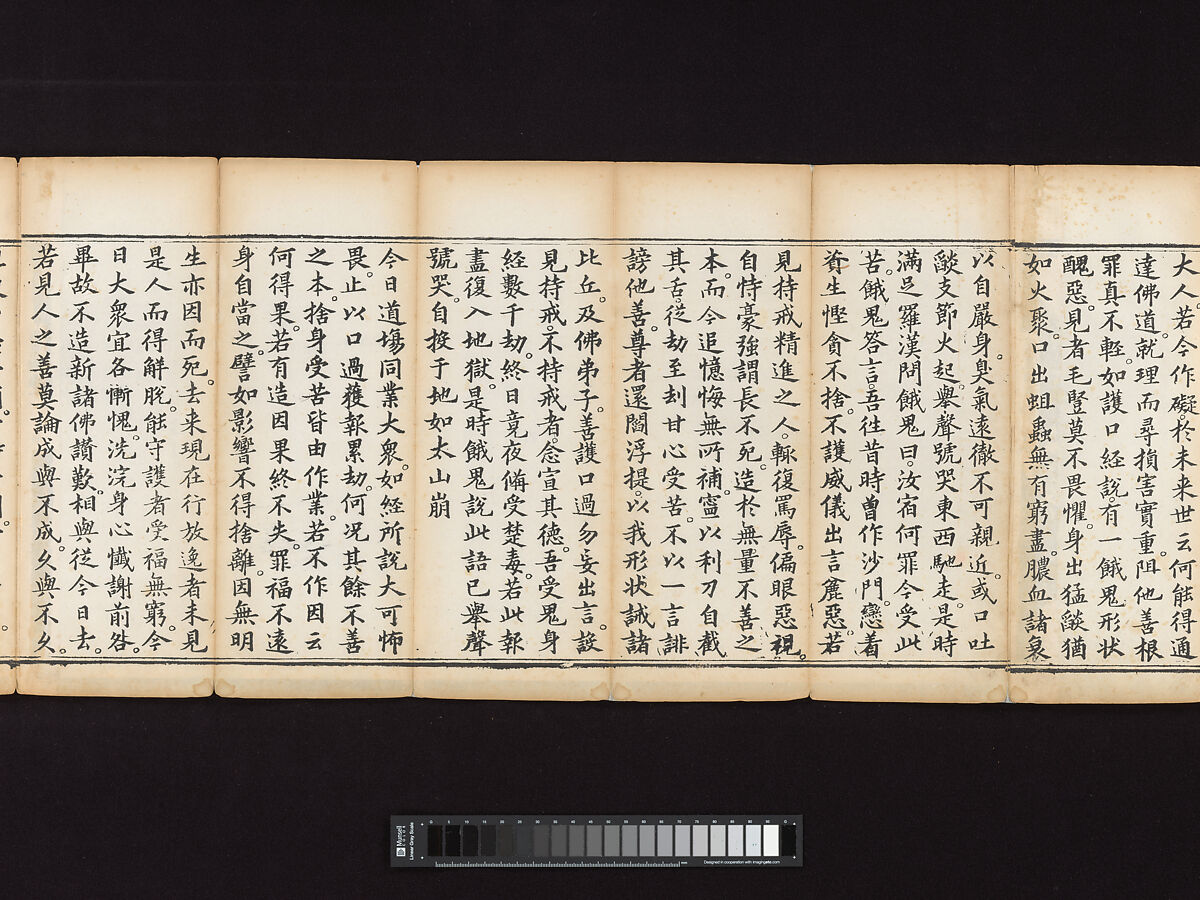 大人。若今作礙。於未来世云何能得通
達佛道。就理而尋損害實重。阻他善根
罪真不輕。如護口経說。有一餓鬼形状
醜惡。見者毛豎莫不畏懼。身出猛燄猶
如火聚。口出蛆蟲無有窮盡。膿血諸衰
以自嚴身。臭氣遠徹不可親近。或口吐
燄支節火起。舉聲號哭東西馳走。是時
滿足羅漢問餓鬼曰。汝宿何罪今受此
苦。餓鬼答言。吾往昔時曽作沙門。戀着
資生慳貪不捨。不護威儀出言麁惡。若
見持戒精進之人。輙復罵辱。偏眼惡視。
自恃豪強謂長不死。造於無量不善之
本。而今追憶悔無所補。寧以利刀自截
其舌。從劫至刼甘心受苦。不以一言誹
謗他善。尊者還閻浮提。以我形状誡諸
比丘。及佛弟子。善護口過勿妄出言。設
見持戒。不持戒者。念宣其德。吾受鬼身
経數千劫。終日竟夜備受楚毒。若此報
盡復入地獄。是時餓鬼說此語已舉聲
號哭。自投于地如太山崩
今日道場同業大衆。如経所說大可怖
畏。止以口過獲報累劫。何况其餘不善
之本。捨身受苦皆由作業。若不作因云
何得果。若有造因果終不失。罪福不遠
身自當之。譬如影響不得捨離。因無明
生亦因而死。去来現在行放逸者未見
是人而得解脫。能守護者受福無窮。今
日大衆宜各慚愧。洗浣身心懺謝前咎。
畢故不造新諸佛讚歎。相與從今日去。
若見人之善莫論成與不成。久與不久。
Munsell
Linear Gray Scale
Designed in cooperation with imagingetc.com